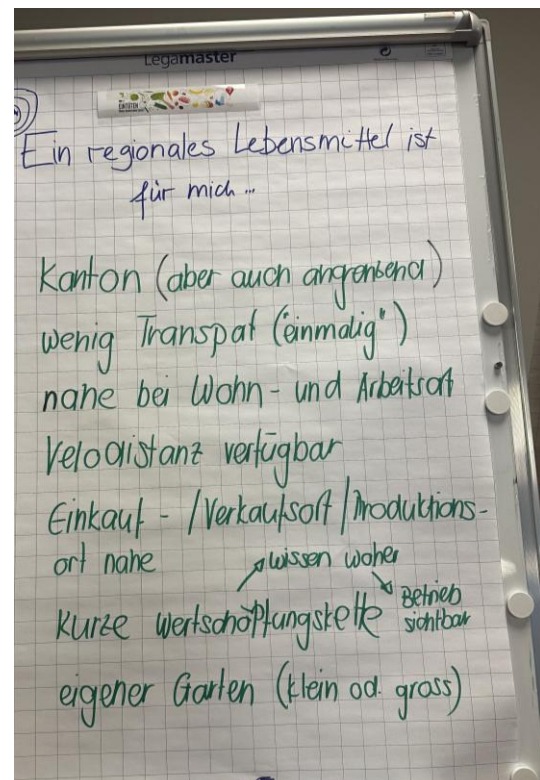 Legamaster
Ein regionales Lebensmittel ist
für mich...
Kanton (aber auch angrensend)
wenig Transpat ("einmalig")
nahe bei Wohn- und Arbeitsort
Velodistanz verfügbar
Einkauf - / Verkaufsort / Produktions-
ort nahe
wissen woher
Betrieb
sichtbar
Kurze Wertschöpfungskette
eigener Garten (klein od. gross)